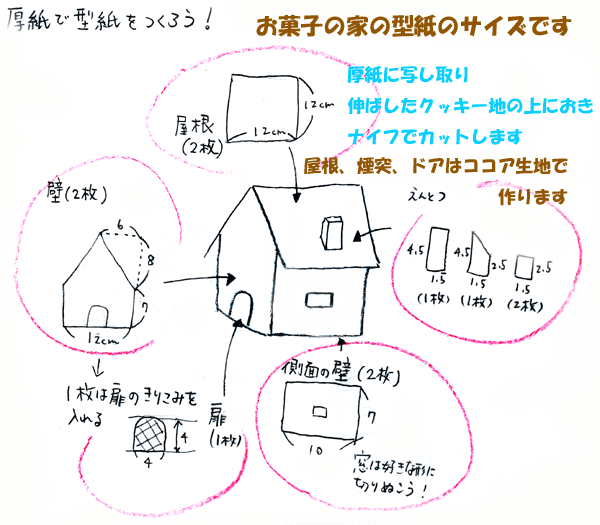 厚紙で型紙をつくろう!
お菓子の家の型紙のサイズです
厚紙に写し取り
伸ばしたクッキー地の上におき
ナイフでカットします
屋根、煙突、ドアはココア生地で
作ります
12cm
12cm
屋根
(2枚)
壁(2枚)
6
8
7
12cm
えんとつ
4.5
1.5
(1枚)
4.5
2.5
1.5
(1枚)
2.5
1.5
(2枚)
1枚は扉のきりこみを
入れる
4
4
扉
(1枚)
側面の壁(2枚)
7
10
窓は好きな形に
切りぬこう!